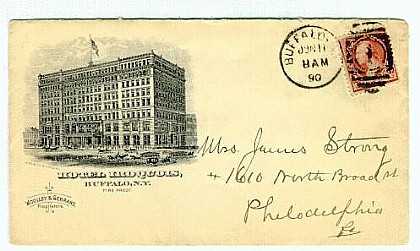 BUFFALO.
JUN 11
8 AM
90
HOTEL IROQUOIS,
BUFFALO, N.Y.
FIRE PROOF
WOOLLEY & GERRANS,
Proprietors.
Mrs. James Strong
1610 North Broad st
Philodelphia
Pa